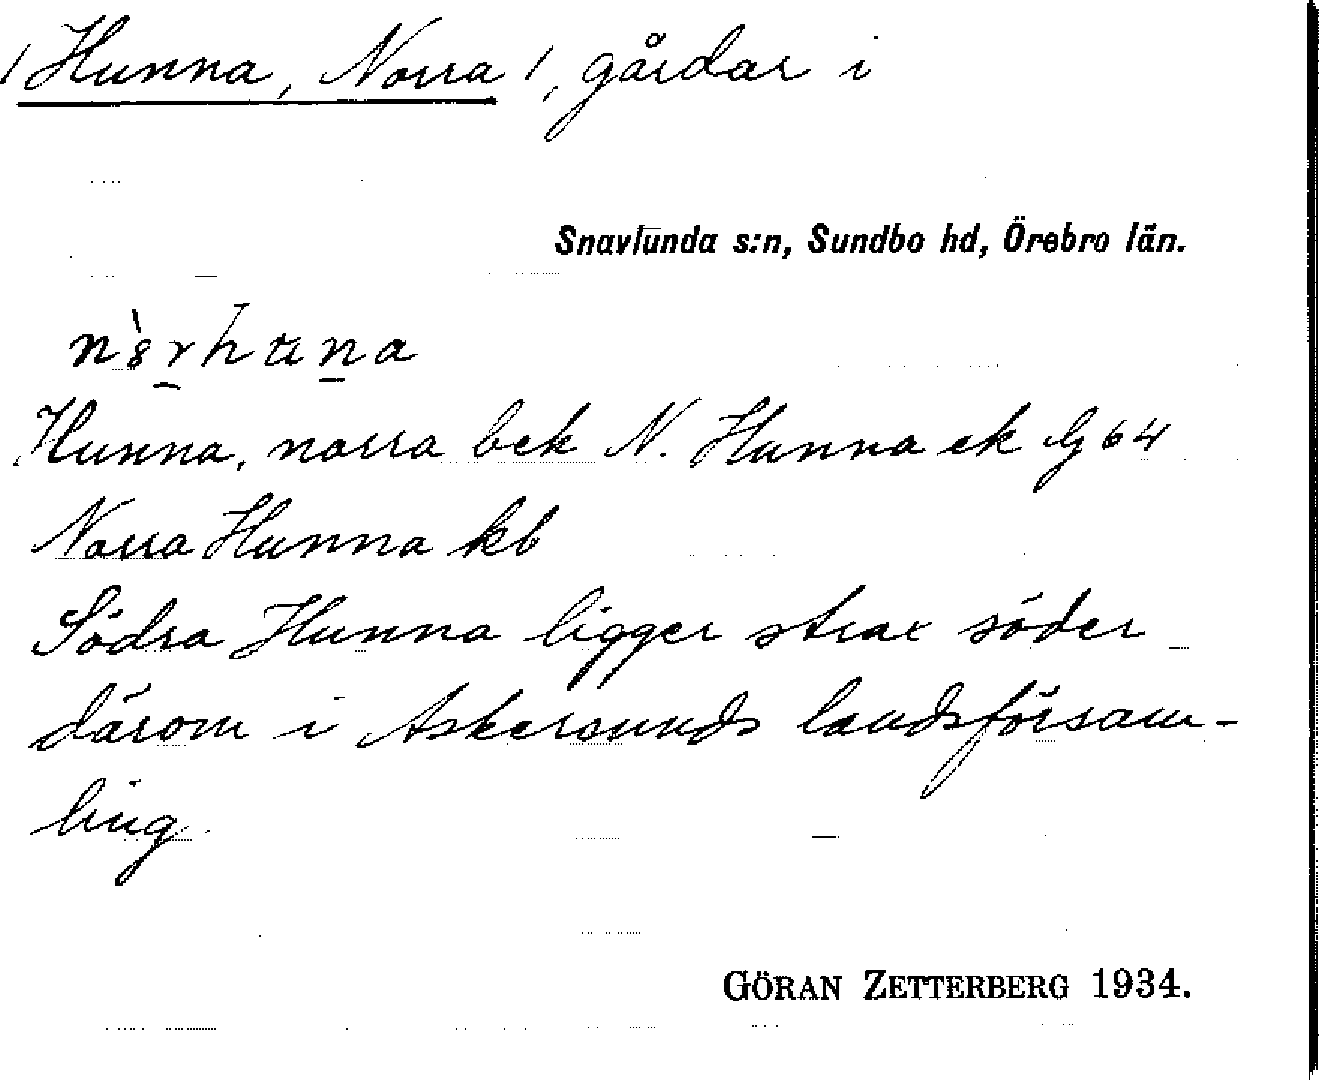 /Hunna, Norra/, gårdar i
Snavlunda s:n, Sundbo hd, Örebro län.
Hunna, norra bek N. Hunna ek lg 64
Norra Hunna kb
Södra Hunna ligger strax söder
därom i Askersunds landsförsam-
ling.
GÖRAN ZETTERBERG 1934.